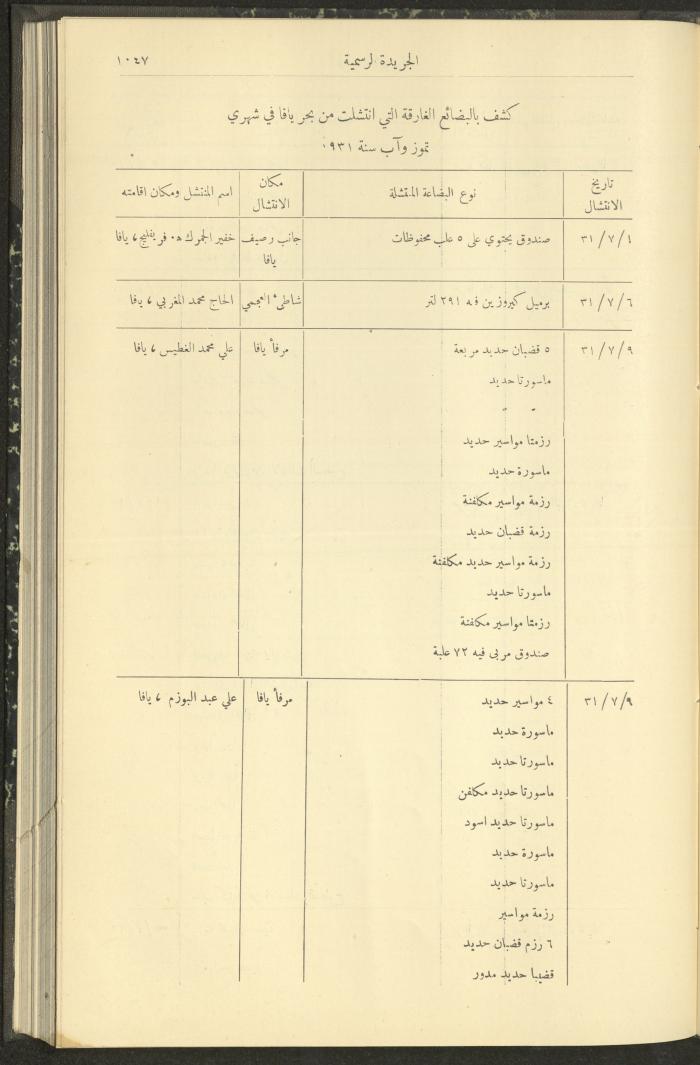 الجريدة لرسمية ١٠٤٧
كشف بالبضائع الغارقة التي انتشلت من بحر يافا في شهري
تموز وآب سنة ٩٣١
تاريخ الانتشال نوع البضاعة المنتشلة مكان الانتشال اسم المنتشل ومكان اقامته
٣١/٧/٤ صندوق يحتوي على ٥ علب محفوظات جانب رصيف خفير الجمرك يافا
يافا
٣١/٧/٦ برميل كيروزين فيه ٢٩١ لتر شاطئ العجمي الحاج محمد المغربي ، يافا
٣١/٧/٩ ٥ قضبان حديد مربعة مرفأ يافا علي محمد الغطيس ، يافا
ماسورتا حديد
" "
رزمتا مواسير حديد
ماسورة حديد
رزمة مواسير مكلفنة
رزمة قضبان حديد
رزمة مواسير حديد مكلفنة
ماسورتا حديد
رزمتا مواسير مكلفنة
صندوق مربى فيه ٧٢ علبة
٣١/٧/٩ ٤ مواسير حديد مرفأ يافا علي عبد البوزم ، يافا
ماسورة حديد
ماسورتا حديد
ماسورتا حديد مكلفن
ماسورتا حديد اسود
ماسورة حديد
ماسورتا حديد
رزمة مواسير
٦ رزم قضبان حديد
قضيبا حديد مدور